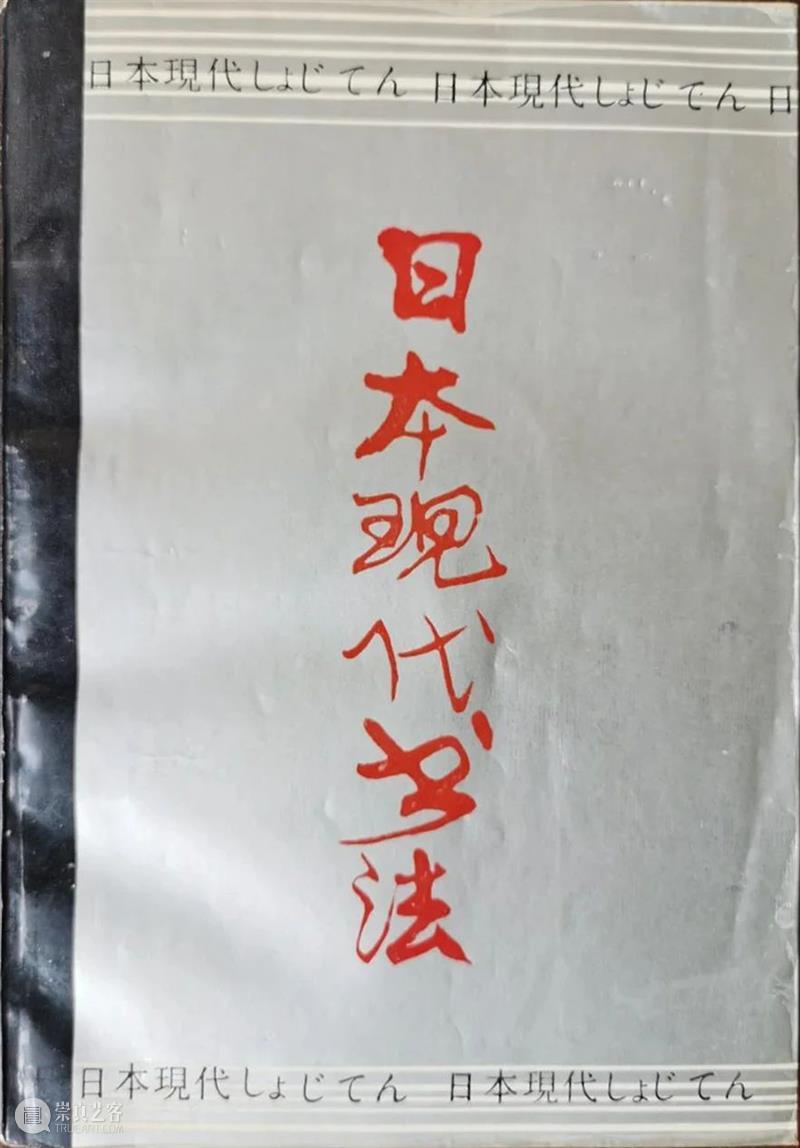 日本現代しょじてん 日本現代しょじてん 日
日本现代书法
日本現代しょじてん 日本現代しょじてん
崇真艺客
TRUEART.COM